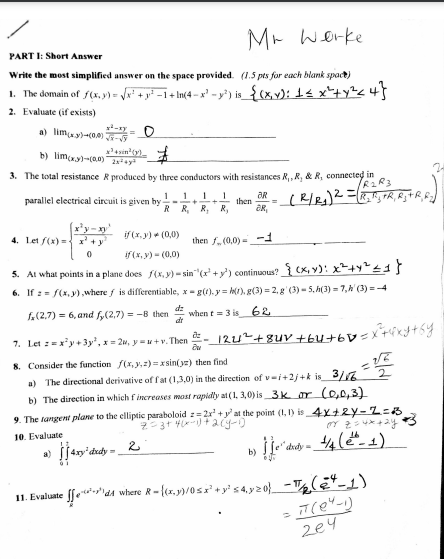 Mr Worke
PART I: Short Answer
Write the most simplified answer on the space provided. (1.5 pts for each blank space)
1. The domain of f(x, y) = √(x² + y² − 1) + ln(4 − x² − y²) is {(x,y): 1 ≤ x²+y² < 4}
2. Evaluate (if exists)
a) lim(x,y)→(0,0) (x²−xy)/(√x−√y) = 0
b) lim(x,y)→(0,0) (x²+sin²(y))/(2x²+y²) = ∄
3. The total resistance R produced by three conductors with resistances R₁, R₂ & R₃ connected in
parallel electrical circuit is given by 1/R = 1/R₁ + 1/R₂ + 1/R₃ then ∂R/∂R₁ = (R/R₁)² = (R₂R₃/(R₂R₃+R₁R₃+R₁R₂))²
4. Let f(x) = { (x²y − xy³)/(x² + y²) if (x, y) ≠ (0,0)
0 if (x, y) = (0,0) then (0,0) = −1
5. At what points in a plane does f(x, y) = sin⁻¹(x² + y²) continuous? {(x,y): x²+y² ≤ 1}
6. If z = f(x, y), where f is differentiable, x = g(t), y = h(t), g(3) = 2, g'(3) = 5, h(3) = 7, h'(3) = −4
fₓ(2,7) = 6, and f_y(2,7) = −8 then dz/dt when t = 3 is 62
7. Let z = x²y + 3y², x = 2u, y = u + v. Then ∂z/∂u = 12u²+8uv+6u+6v = x²+4xy+6y
8. Consider the function f(x, y, z) = x sin(yz) then find
a) The directional derivative of f at (1,3,0) in the direction of v = i + 2j + k is 3/√6 = √6/2
b) The direction in which f increases most rapidly at (1, 3, 0) is 3k or (0,0,3)
9. The tangent plane to the elliptic paraboloid z = 2x² + y² at the point (1, 1) is 4x+2y−z=3
z = 3 + 4(x−1) + 2(y−1) or z = 4x+2y−3
10. Evaluate
a) ∫₀¹∫₁² 4xy³ dxdy = 2 b) dxdy = 1/4(e¹⁶−1)
11. Evaluate ∬_R e^−(x²+y²) dA where R = {(x, y)/0 ≤ x² + y² ≤ 4, y ≥ 0} −π/2(e⁻⁴−1)
= π(e⁴−1)/2e⁴